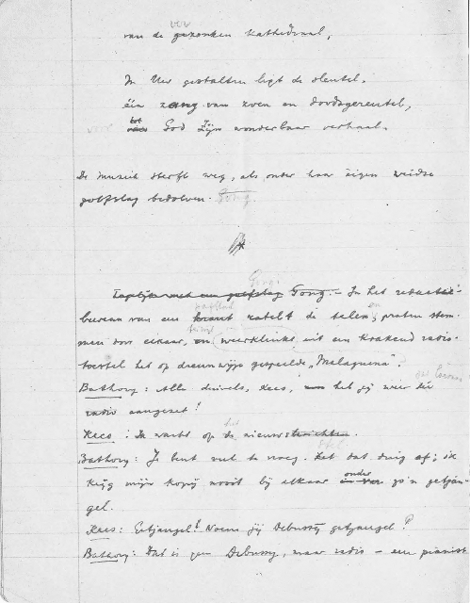 ver
van de gezonken kathedraal,
In Uw gestalten ligt de sleutel,
één zang van zwen en doodsgereutel,
tot
voor God Zijn wonderbaar verhaal.
De muziek sterft weg, als onder haar eigen weidse
golfslag bedolven. Gong.
Gong.
Tegelijk met een golfslag Gong. – In het redactie-
bureau van een krant ratelt de telex, praten stem-
men door elkaar, en weerklinkt uit een krakend radio-
toestel het op dreunwijs gespeelde „Malaguena".
Bathory: Alle duivels, Kees, heb jij weer de
radio aangezet!
het
Kees: Ik wacht op de nieuwsberichten.
Bathory: Je bent veel te vroeg. Zet dat ding af; ik
krijg mijn kopij nooit bij elkaar onder zo'n getjän-
gel.
Kees: Getjangel! Noem jij Debussy getjangel?
Bathory: Dat is geen Debussy, maar radio – een pianist